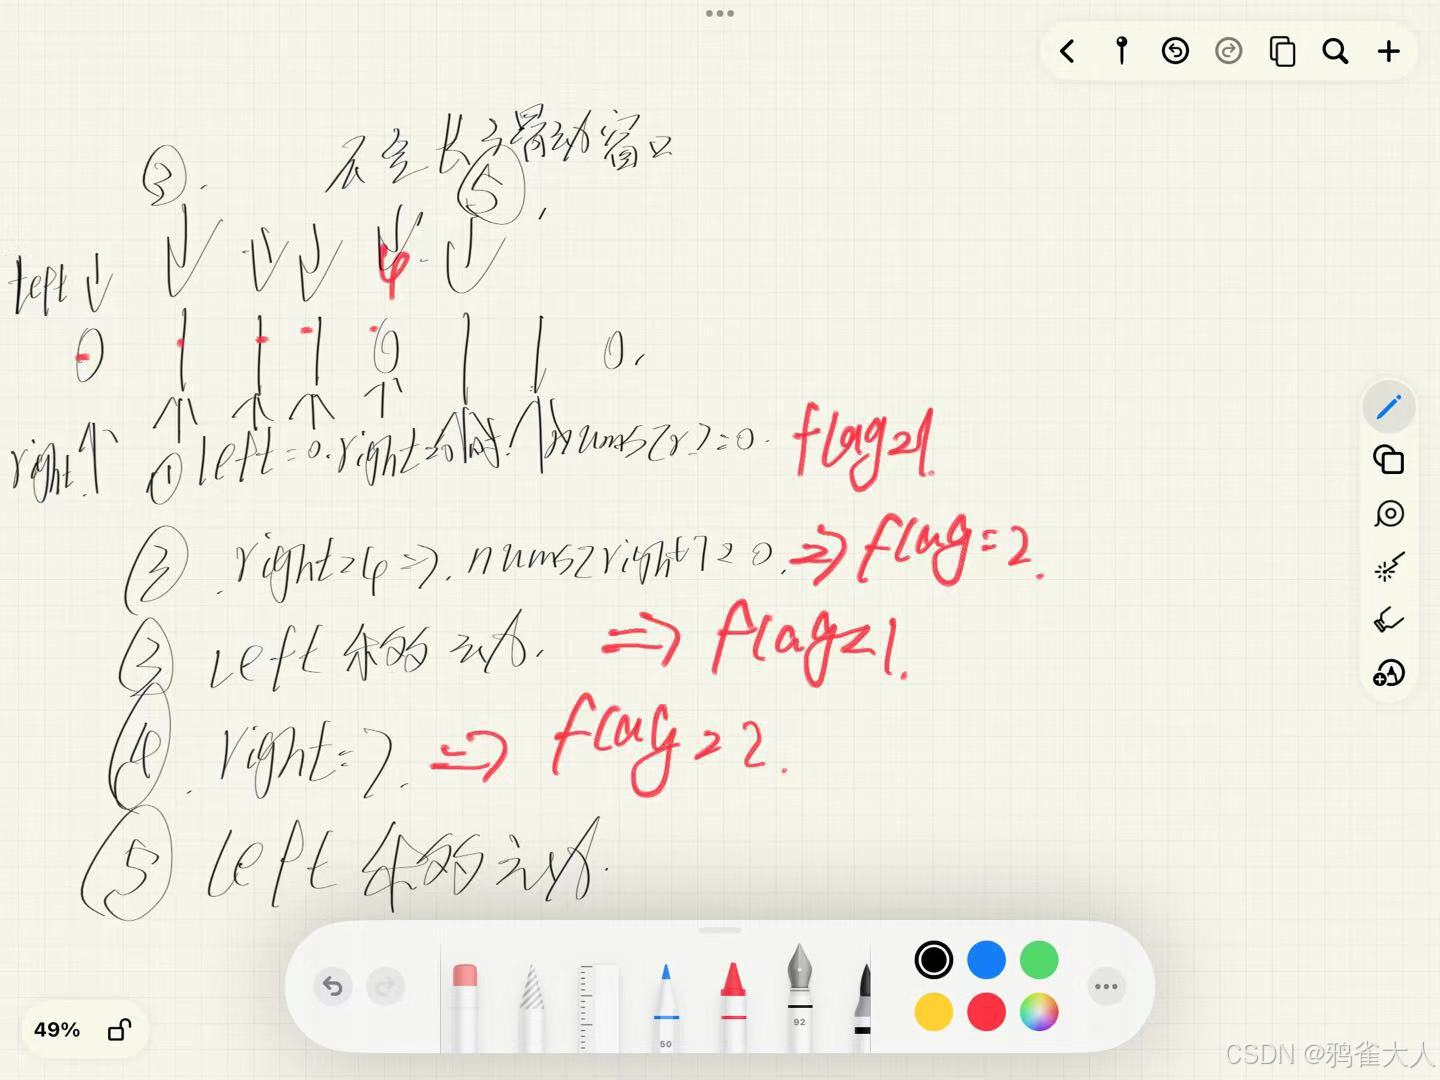 ③. 不定长滑动窗口
⑤
left
4
0 1 1 1 0 1 1 0.
right
① left=0.right=0时! nums[r]=0. flag=1.
② right=4=>. nums[right]=0. => flag=2.
③ left 右移动. => flag=1.
④. right=7. => flag=2.
⑤ left 右移动.
50
92
49%
CSDN @鸦雀大人